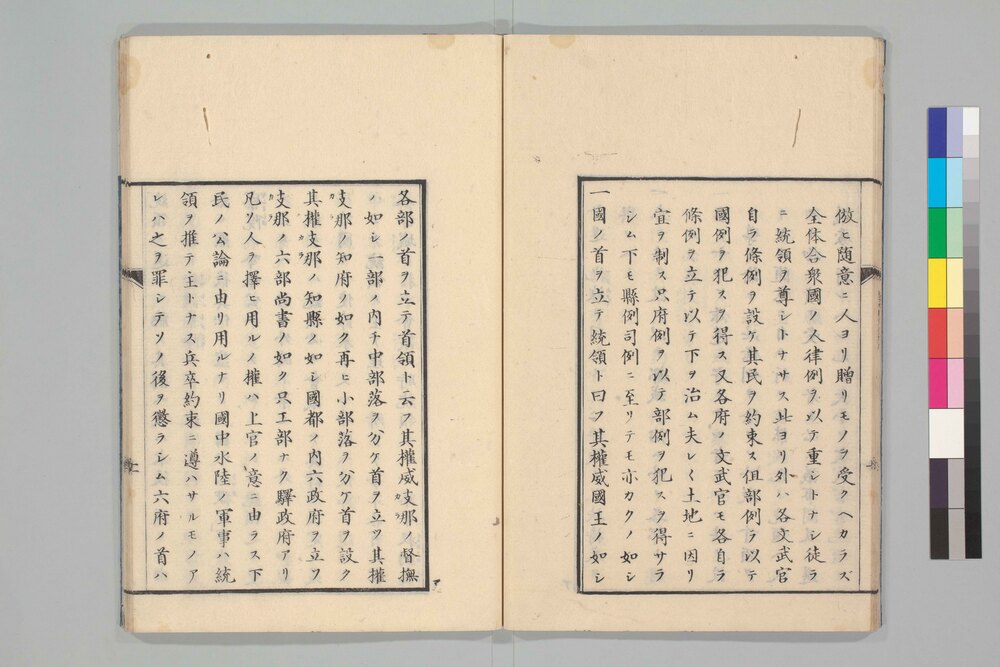 倣ヒ随意ニ人ヨリ贈リモノヲ受クヘカラズ
全体合衆國ノ人律例ヲ以テ重シトナシ徒ラ
ニ統領ヲ尊シトナサス此ヨリ外ハ各文武官
自ラ條例ヲ設ケ其民ヲ約束ス但部例ヲ以テ
國例ヲ犯スヲ得ス又各府ノ文武官モ各自ラ
條例ヲ立テ以テ下ヲ治ム夫レ〱土地ニ因リ
宜ヲ制ス只府例ヲ以テ部例ヲ犯スヲ得サラ
シム下モ縣例司例ニ至リテモ亦カクノ如シ
一國ノ首ヲ立テ統領ト曰フ其權威國王ノ如シ
各部ノ首ヲ立テ首領ト云フ其權威支那ノ督撫
ノ如シ一部ノ内チ中部落ヲ分ケ首ヲ立ツ其權
支那ノ知府ノ如ク再ヒ小部落ヲ分ケ首ヲ設ク
其權支那ノ知縣ノ如シ國都ノ内六政府ヲ立ツ
支那ノ六部尚書ノ如ク只工部ナク驛政府アリ
凡ソ人ヲ擇ヒ用ルノ權ハ上官ノ意ニ由ラス下
民ノ公論ニ由リ用ルナリ國中水陸ノ軍事ハ統
領ヲ推テ主トナス兵卒約束ニ遵ハサルモノア
レハ之ヲ罪シテソノ後ヲ懲ラシム六府ノ首ハ